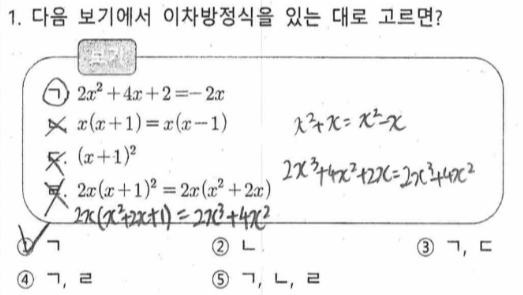 1. 다음 보기에서 이차방정식을 있는 대로 고르면?
보기
ㄱ. 2x²+4x+2=-2x
ㄴ. x(x+1)=x(x-1)
x²+x=x²-x
ㄷ. (x+1)²
2x³+4x²+2x=2x³+4x²
ㄹ. 2x(x+1)²=2x(x²+2x)
2x(x²+2x+1)=2x³+4x²
① ㄱ ② ㄴ ③ ㄱ, ㄷ
④ ㄱ, ㄹ ⑤ ㄱ, ㄴ, ㄹ